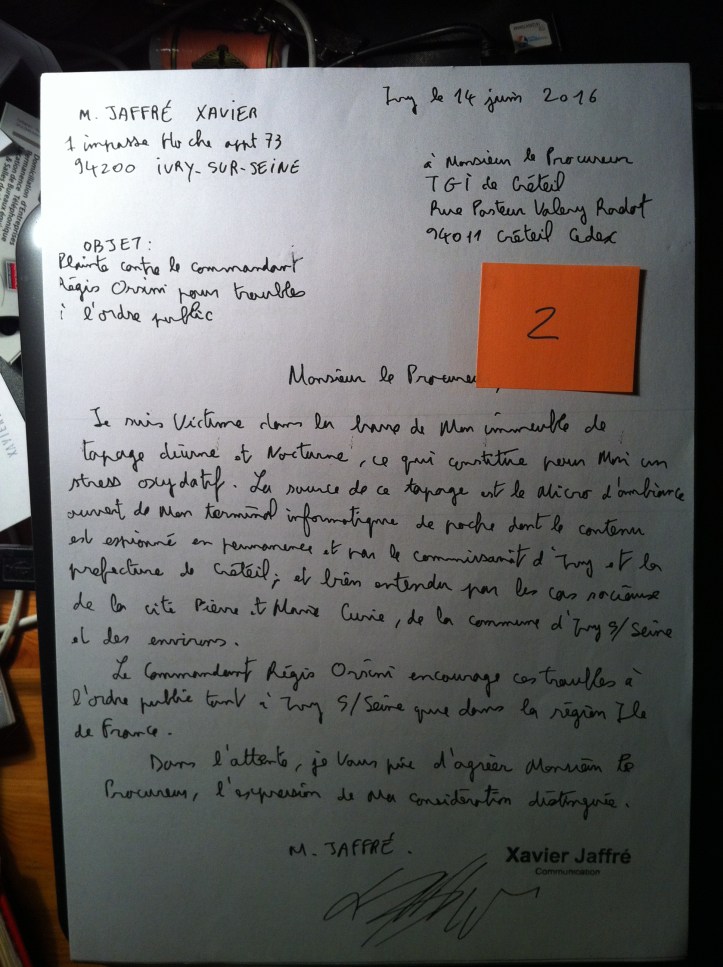 M. JAFFRÉ XAVIER
1 impasse Hoche appt 73
94200 IVRY-SUR-SEINE
Ivry le 14 juin 2016
à Monsieur le Procureur
TGI de Créteil
Rue Pasteur Valery Radot
94011 Créteil Cedex
OBJET:
Plainte contre le commandant
Régis Orsini pour troubles
à l'ordre public
2
Monsieur le Procureur,
Je suis Victime dans la barre de Mon immeuble de
tapage diurne et Nocturne, ce qui constitue pour Moi un
stress oxydatif. La source de ce tapage est le Micro d'ambiance
ouvert de Mon terminal informatique de poche dont le contenu
est espionné en permanence et par le commissariat d'Ivry et la
prefecture de Créteil; et bien entendu par les cas sociaux
de la cité Pierre et Marie Curie, de la commune d'Ivry S/Seine
et des environs.
Le Commandant Régis Orsini encourage ces troubles à
l'ordre public tant à Ivry S/Seine que dans la région Ile
de France.
Dans l'attente, je Vous prie d'agréer Monsieur le
Procureur, l'expression de Ma considération distinguée.
M. JAFFRÉ.
Xavier Jaffré
Communication